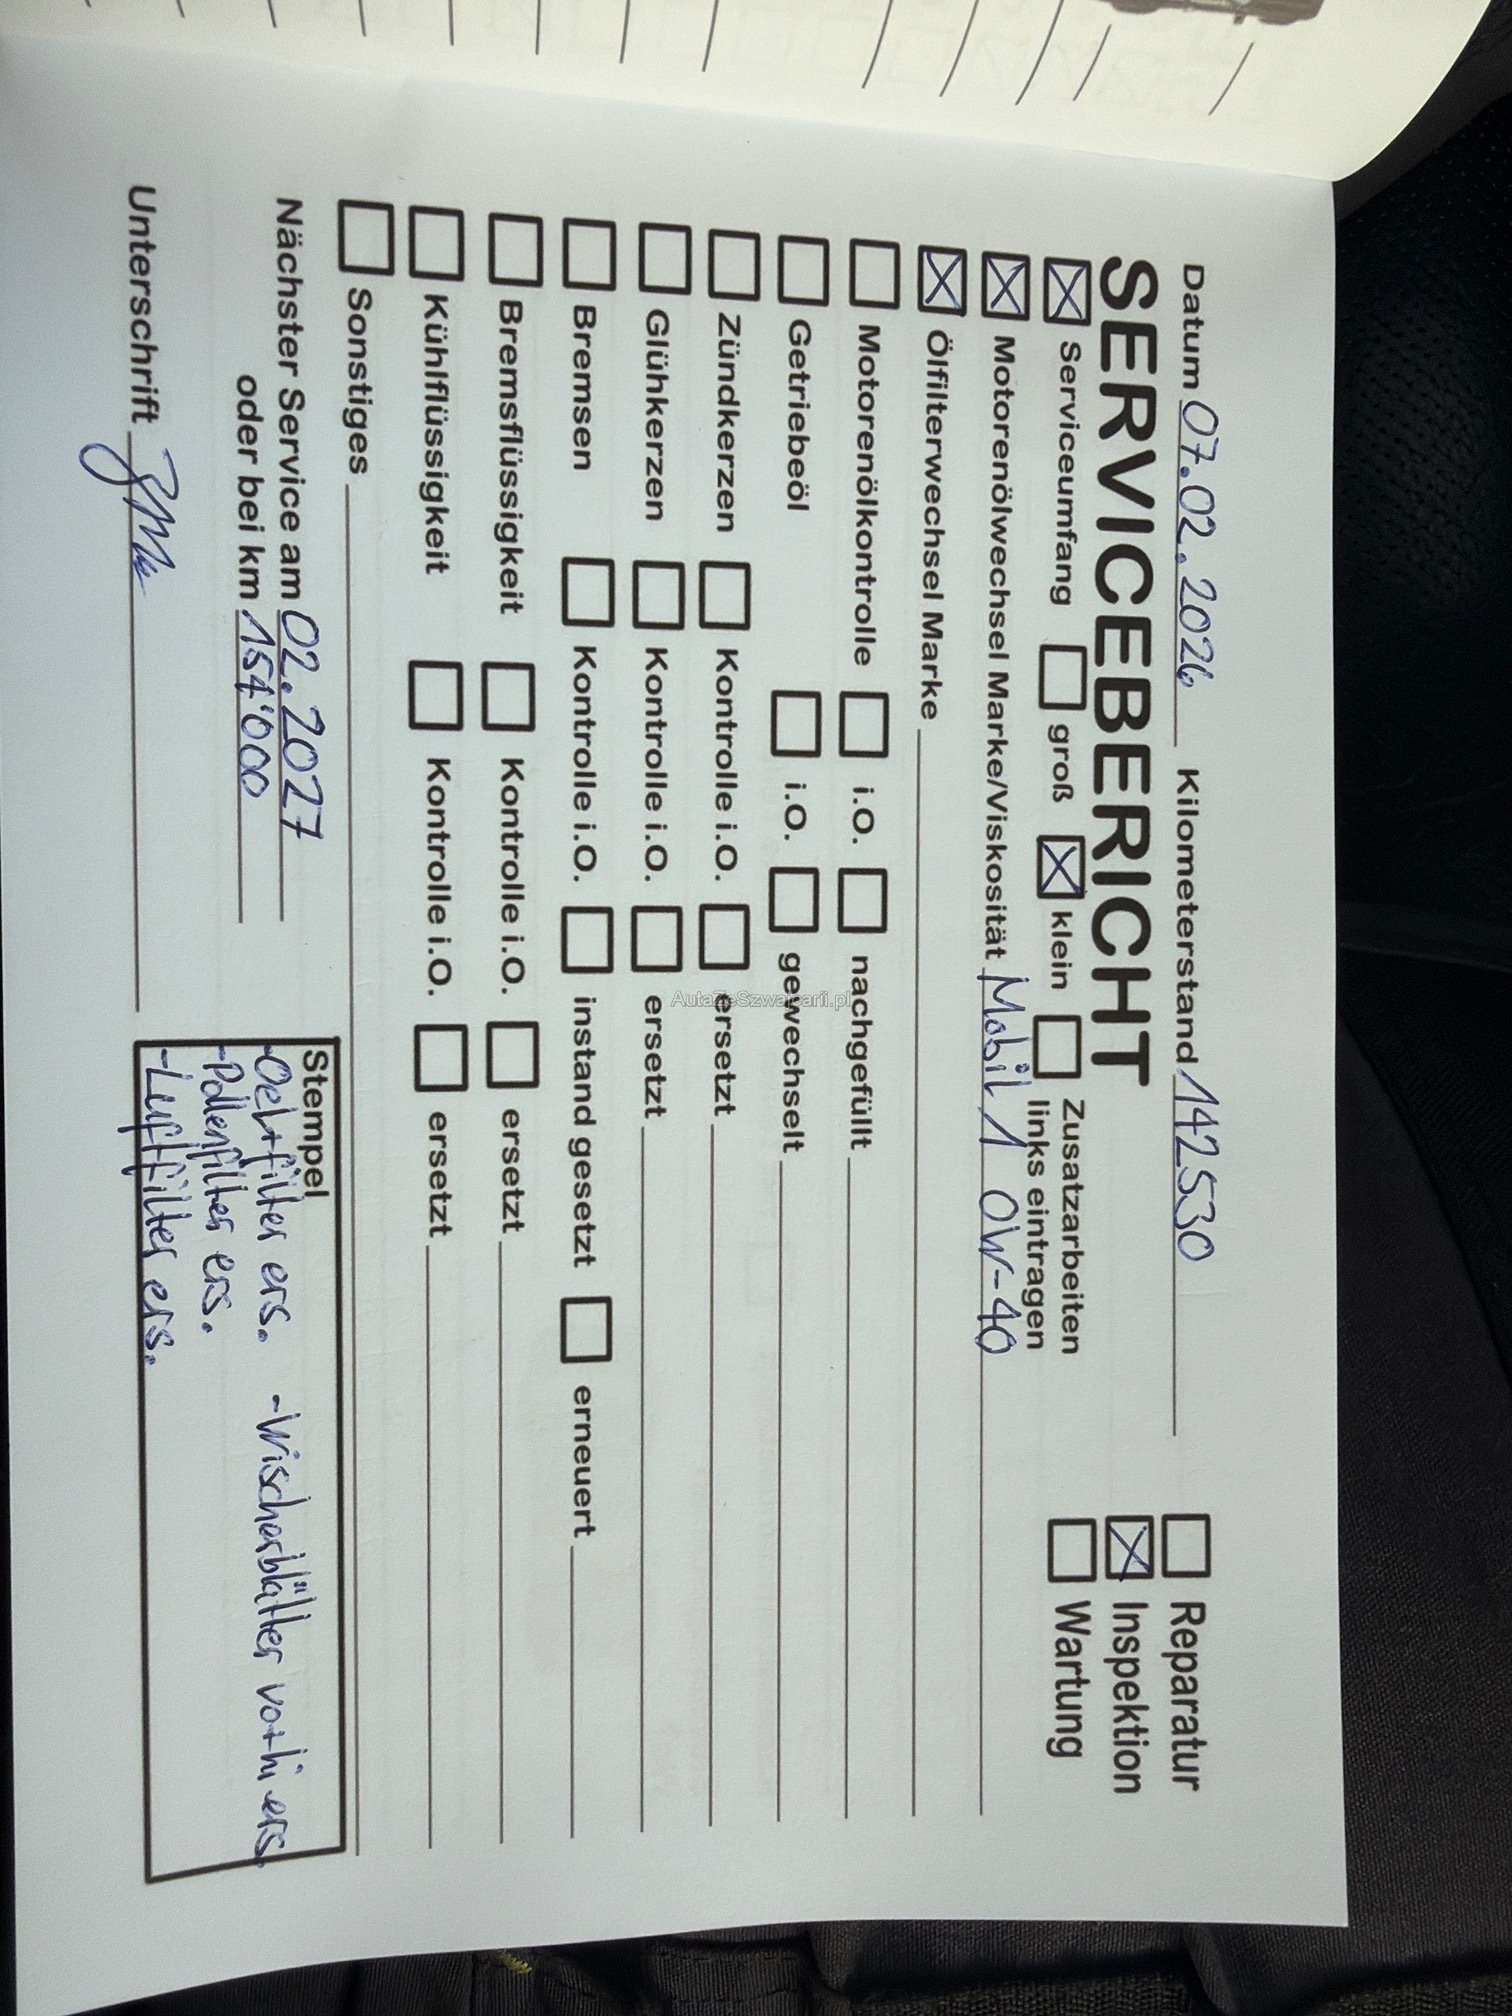 Datum 07.02.2026 Kilometerstand 142530
SERVICEBERICHT
Reparatur
Inspektion
Wartung
Serviceumfang groß klein Zusatzarbeiten
links eintragen
Motorenölwechsel Marke/Viskosität Mobil 1 0W-40
Ölfilterwechsel Marke
Motorenölkontrolle i.O. nachgefüllt
Getriebeöl i.O. gewechselt
Zündkerzen Kontrolle i.O. ersetzt
Glühkerzen Kontrolle i.O. ersetzt
Bremsen Kontrolle i.O. instand gesetzt erneuert
Bremsflüssigkeit Kontrolle i.O. ersetzt
Kühlflüssigkeit Kontrolle i.O. ersetzt
Sonstiges
Nächster Service am 02.2027
oder bei km 154'000
Unterschrift
Stempel
-Oel+filter ers. -Wischerblätter vo+hi ers
-Pollenfilter ers.
-Luftfilter ers.
AutaZeSzwajcarii.pl